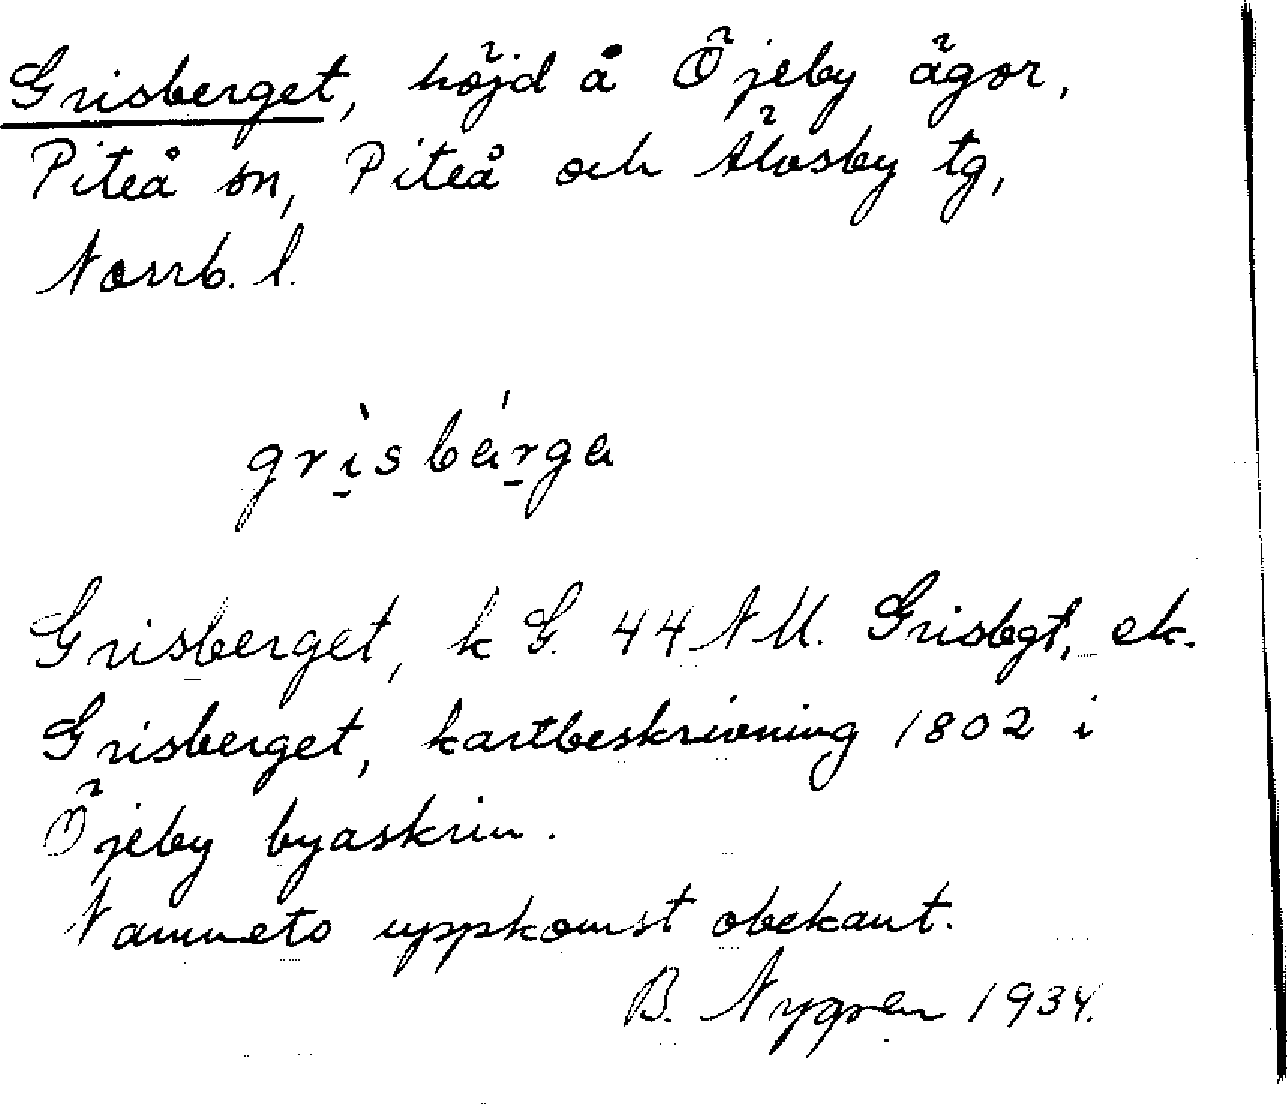 Grisberget, höjd å Öjeby ägor,
Piteå sn, Piteå och Älvsby tg,
Norrb. l.
grìsbárga
Grisberget, k G. 44 NU. Grisbgt, ek.
Grisberget, kartbeskrivning 1802 i
Öjeby byaskrin.
Namnets uppkomst obekant.
B. Nygren 1934.